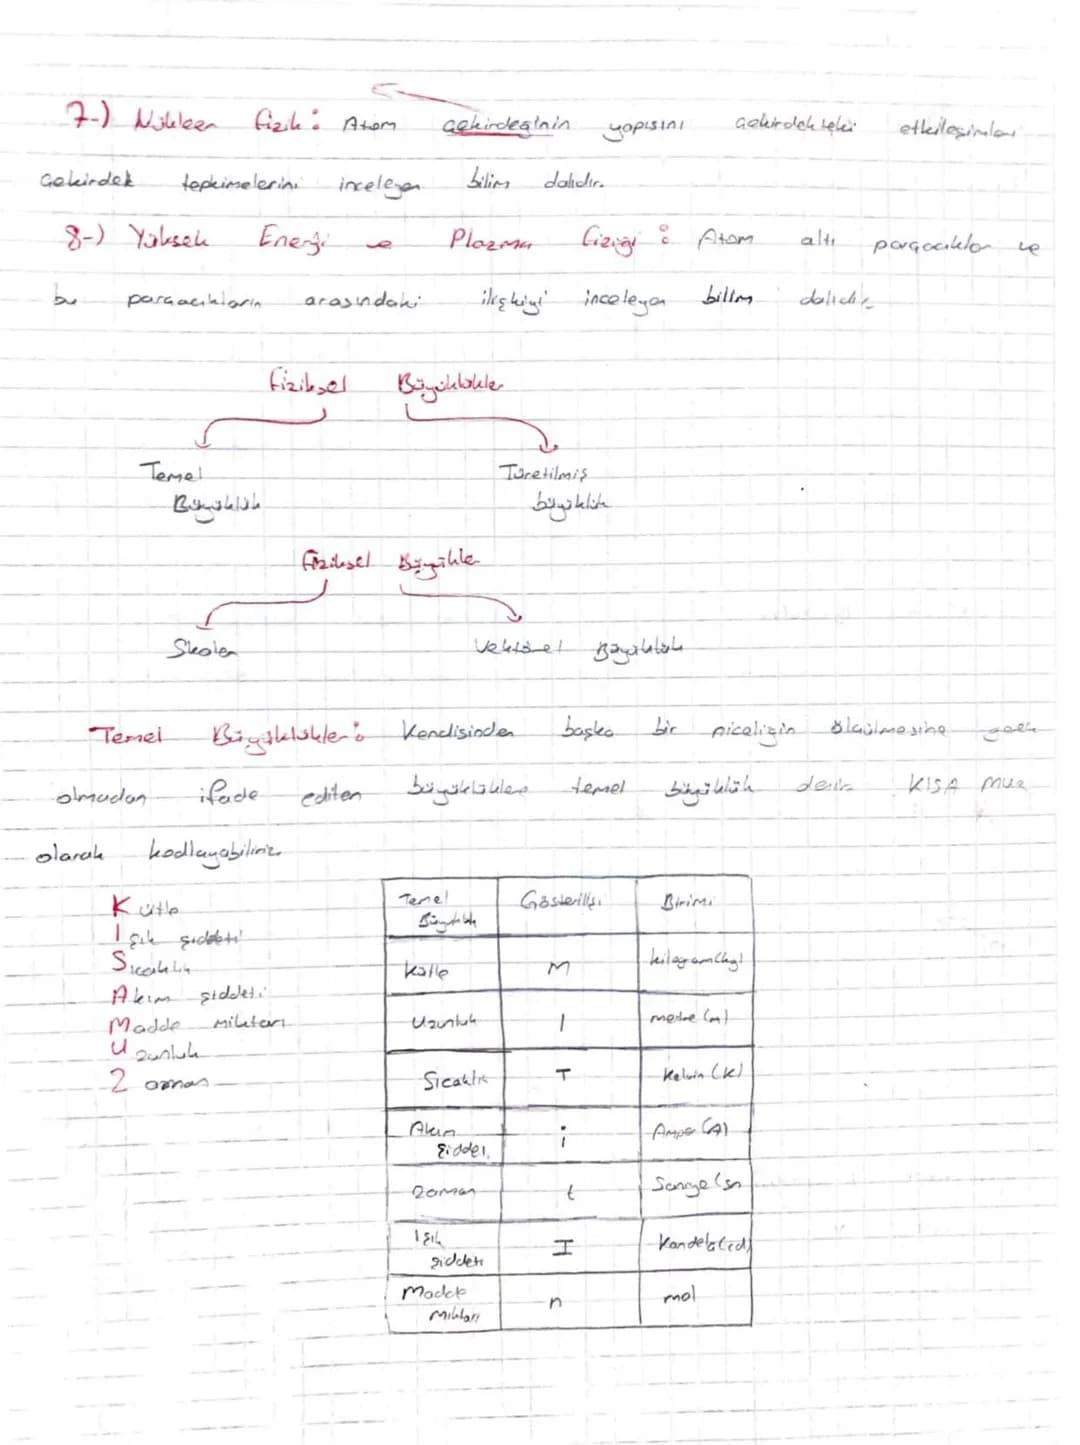 7-) Nükleer fizik: Atom çekirdeğinin yapısını çekirdekteki etkileşimleri
çekirdek tepkimelerini inceleyen bilim dalıdır.
8-) Yüksek Enerji ve Plazma fiziği: Atom altı parçacıklar ve
bu parçacıkların arasındaki ilişkiyi inceleyen bilim dalıdır
fiziksel Büyüklükler
Temel Türetilmiş
Büyüklük büyüklük
fiziksel
Skaler Vektörel Büyüklük
Temel Büyüklükler: Kendisinden başka bir niceliğin ölçülmesine gerek
olmadan ifade edilen büyüklüklere temel büyüklük denir. KISA MUZ
olarak kodlayabiliriz.
Kütle
Işık şiddeti
Sıcaklık
Akım şiddeti
Madde Miktarı
Uzunluk
Zaman
Temel Büyüklük Gösterilişi Birimi
Kütle M kilogram (kg)
Uzunluk l metre (m)
Sıcaklık T Kelvin (K)
Akım şiddet. i Amper (A)
Zaman t Saniye (sn
Işık şiddeti I Kandela (cd)
Madde Miktarı n mol